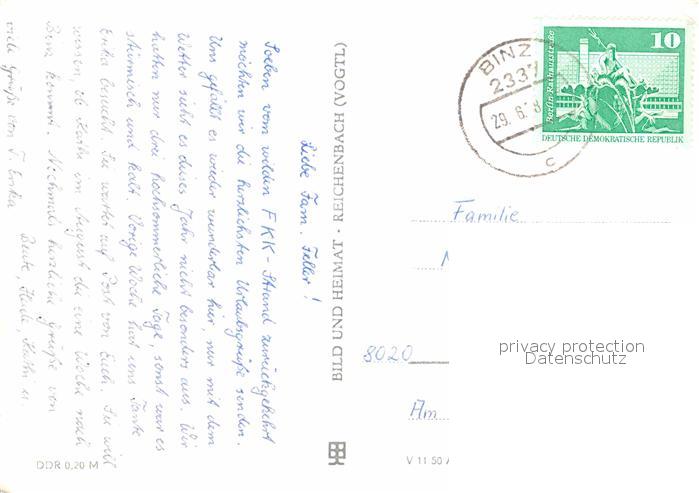 Liebe Fam. Feller!
Soeben vom wilden FKK-Strand zurückgekehrt
möchten wir die herzlichsten Urlaubsgrüße senden.
Uns gefällt es wieder wunderbar hier, nur mit dem
Wetter sieht es dieses Jahr nicht besonders aus. Wir
hatten nur drei hochsommerliche Tage, sonst war es
stürmisch und kalt. Vorige Woche hat uns Tante
Erika besucht. Sie wartet auf Post von Euch. Sie will
wissen, ob Kathi im August die eine Woche nach
Binz kommt. Nochmals herzliche Grüße von
Beate, Heide, Kathi u.
viele Grüße von T. Erika
DDR 0,20 M
BILD UND HEIMAT · REICHENBACH (VOGTL)
V 11 50
BINZ
2337
29. 6.
c
10
Berlin, Rathausstraße
DEUTSCHE DEMOKRATISCHE REPUBLIK
Familie
8020
Am
privacy protection
Datenschutz